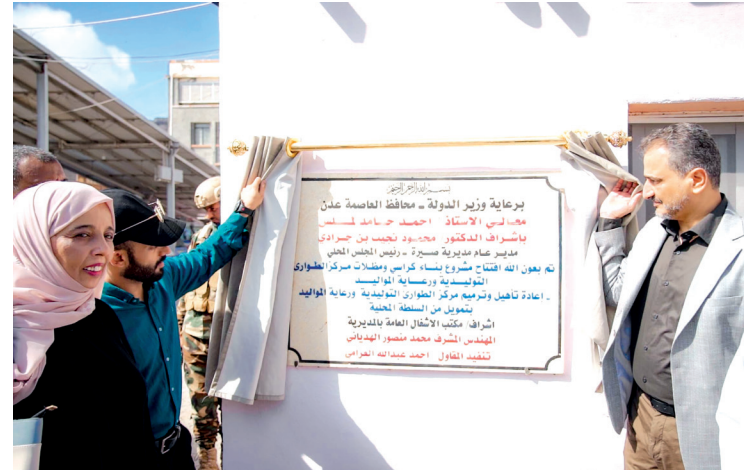 بسم الله الرحمن الرحيم
برعاية وزير الدولة - محافظ العاصمة عدن
معالي الاستاذ / احمد حامد لملس
بإشراف الدكتور / محمود نجيب بن جرادي
مدير عام مديرية صيرة - رئيس المجلس المحلي
تم بعون الله افتتاح مشروع بناء كراسي ومظلات مركز الطوارئ
التوليدية ورعاية المواليد
- إعادة تأهيل وترميم مركز الطوارئ التوليدية ورعاية المواليد
بتمويل من السلطة المحلية
اشراف/ مكتب الاشغال العامة بالمديرية
المهندس المشرف محمد منصور الهدياني
تنفيذ المقاول / احمد عبدالله العرامي